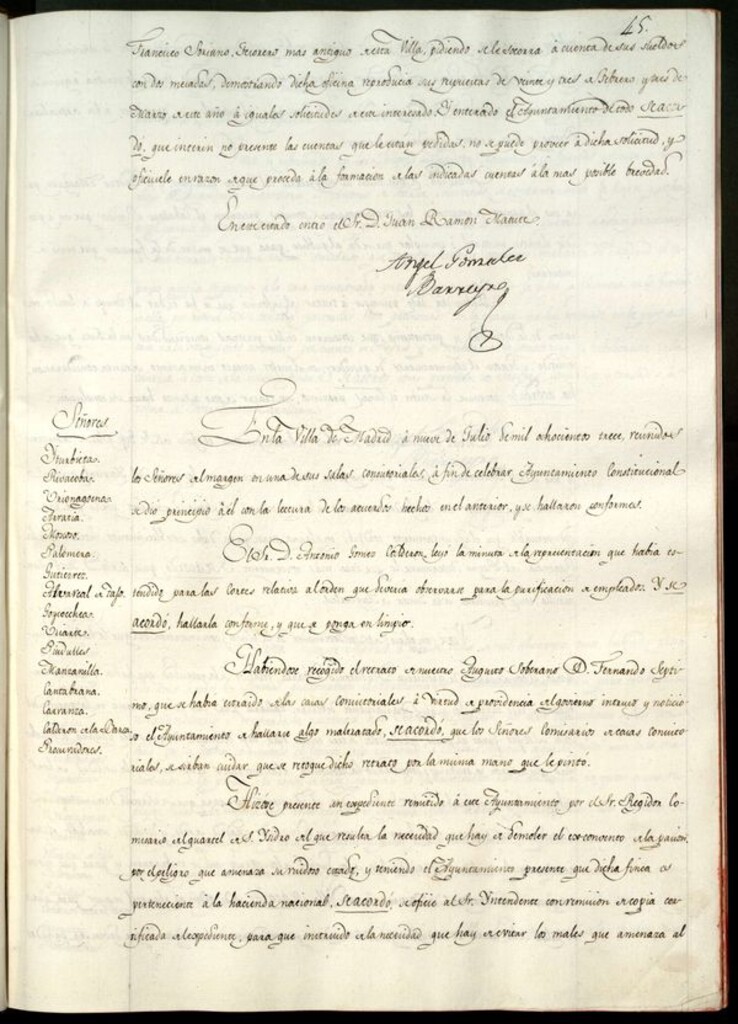 45.
Francisco Soriano, Tesorero mas antiguo de esta Villa, pidiendo se le socorra á cuenta de sus sueldos
con dos mesadas, demostrando dicha oficina reproducia sus repuestas de veinte y tres de Febrero y tres de
Marzo de este año á iguales solicitudes de este interesado. Y enterado el Ayuntamiento de todo se acor
dó, que interin no presente las cuentas que le estan pedidas, no se puede proveer á dicha solicitud, y
oficiesele en razon de que proceda á la formacion de las indicadas cuentas á la mas posible brevedad.
En este estado entro el Sr. D. Juan Ramon Matute.
Angel Gonzalez
Barreyro
Señores
Yturbieta.
Rivacoba.
Urionagoena.
Arratia.
Monoso.
Palomera.
Gutierrez.
Abarcal de
Goycochea.
Uriarte.
Pindulles
Manzanilla.
Cantabrana.
Carranza.
Calderon de la Barca.
Procuradores.
En la Villa de Madrid á nueve de Julio de mil ochocientos trece, reunidos
los Señores del margen en una de sus salas consistoriales, á fin de celebrar Ayuntamiento Constitucional
se dio principio á él con la lectura de los acuerdos hechos en el anterior, y se hallaron conformes.
El Sr. D. Antonio Gomez Calderon leyó la minuta de la representacion que habia es
tendido para las cortes relativa al orden que deveria observarse para la purificacion de empleados. Y se
acordó, hallarla conforme, y que se ponga en limpio.
Habiendose recogido el retrato de nuestro Augusto Soberano el Sr. D. Fernando Septi
mo, que se habia extraido de las casas consistoriales á virtud de providencia del govierno intruso y noticio
so el Ayuntamiento de hallarse algo maltratado, se acordó, que los Señores Comisarios de casas consisto
riales, se sirban cuidar que se retoque dicho retrato por la misma mano que le pintó.
Hizose presente un expediente remitido á este Ayuntamiento por el Sr. Regidor Co
misario del quartel de S. Ysidro del que resulta la necesidad que hay de demoler el ex-convento de la pasion,
por el peligro que amenaza su ruidoso estado, y teniendo el Ayuntamiento presente que dicha finca es
perteneciente á la hacienda nacional, se acordó, se oficie al Sr. Yntendente con remision de copia cer
tificada del expediente, para que instruido de la necesidad que hay de evitar los males que amenaza al